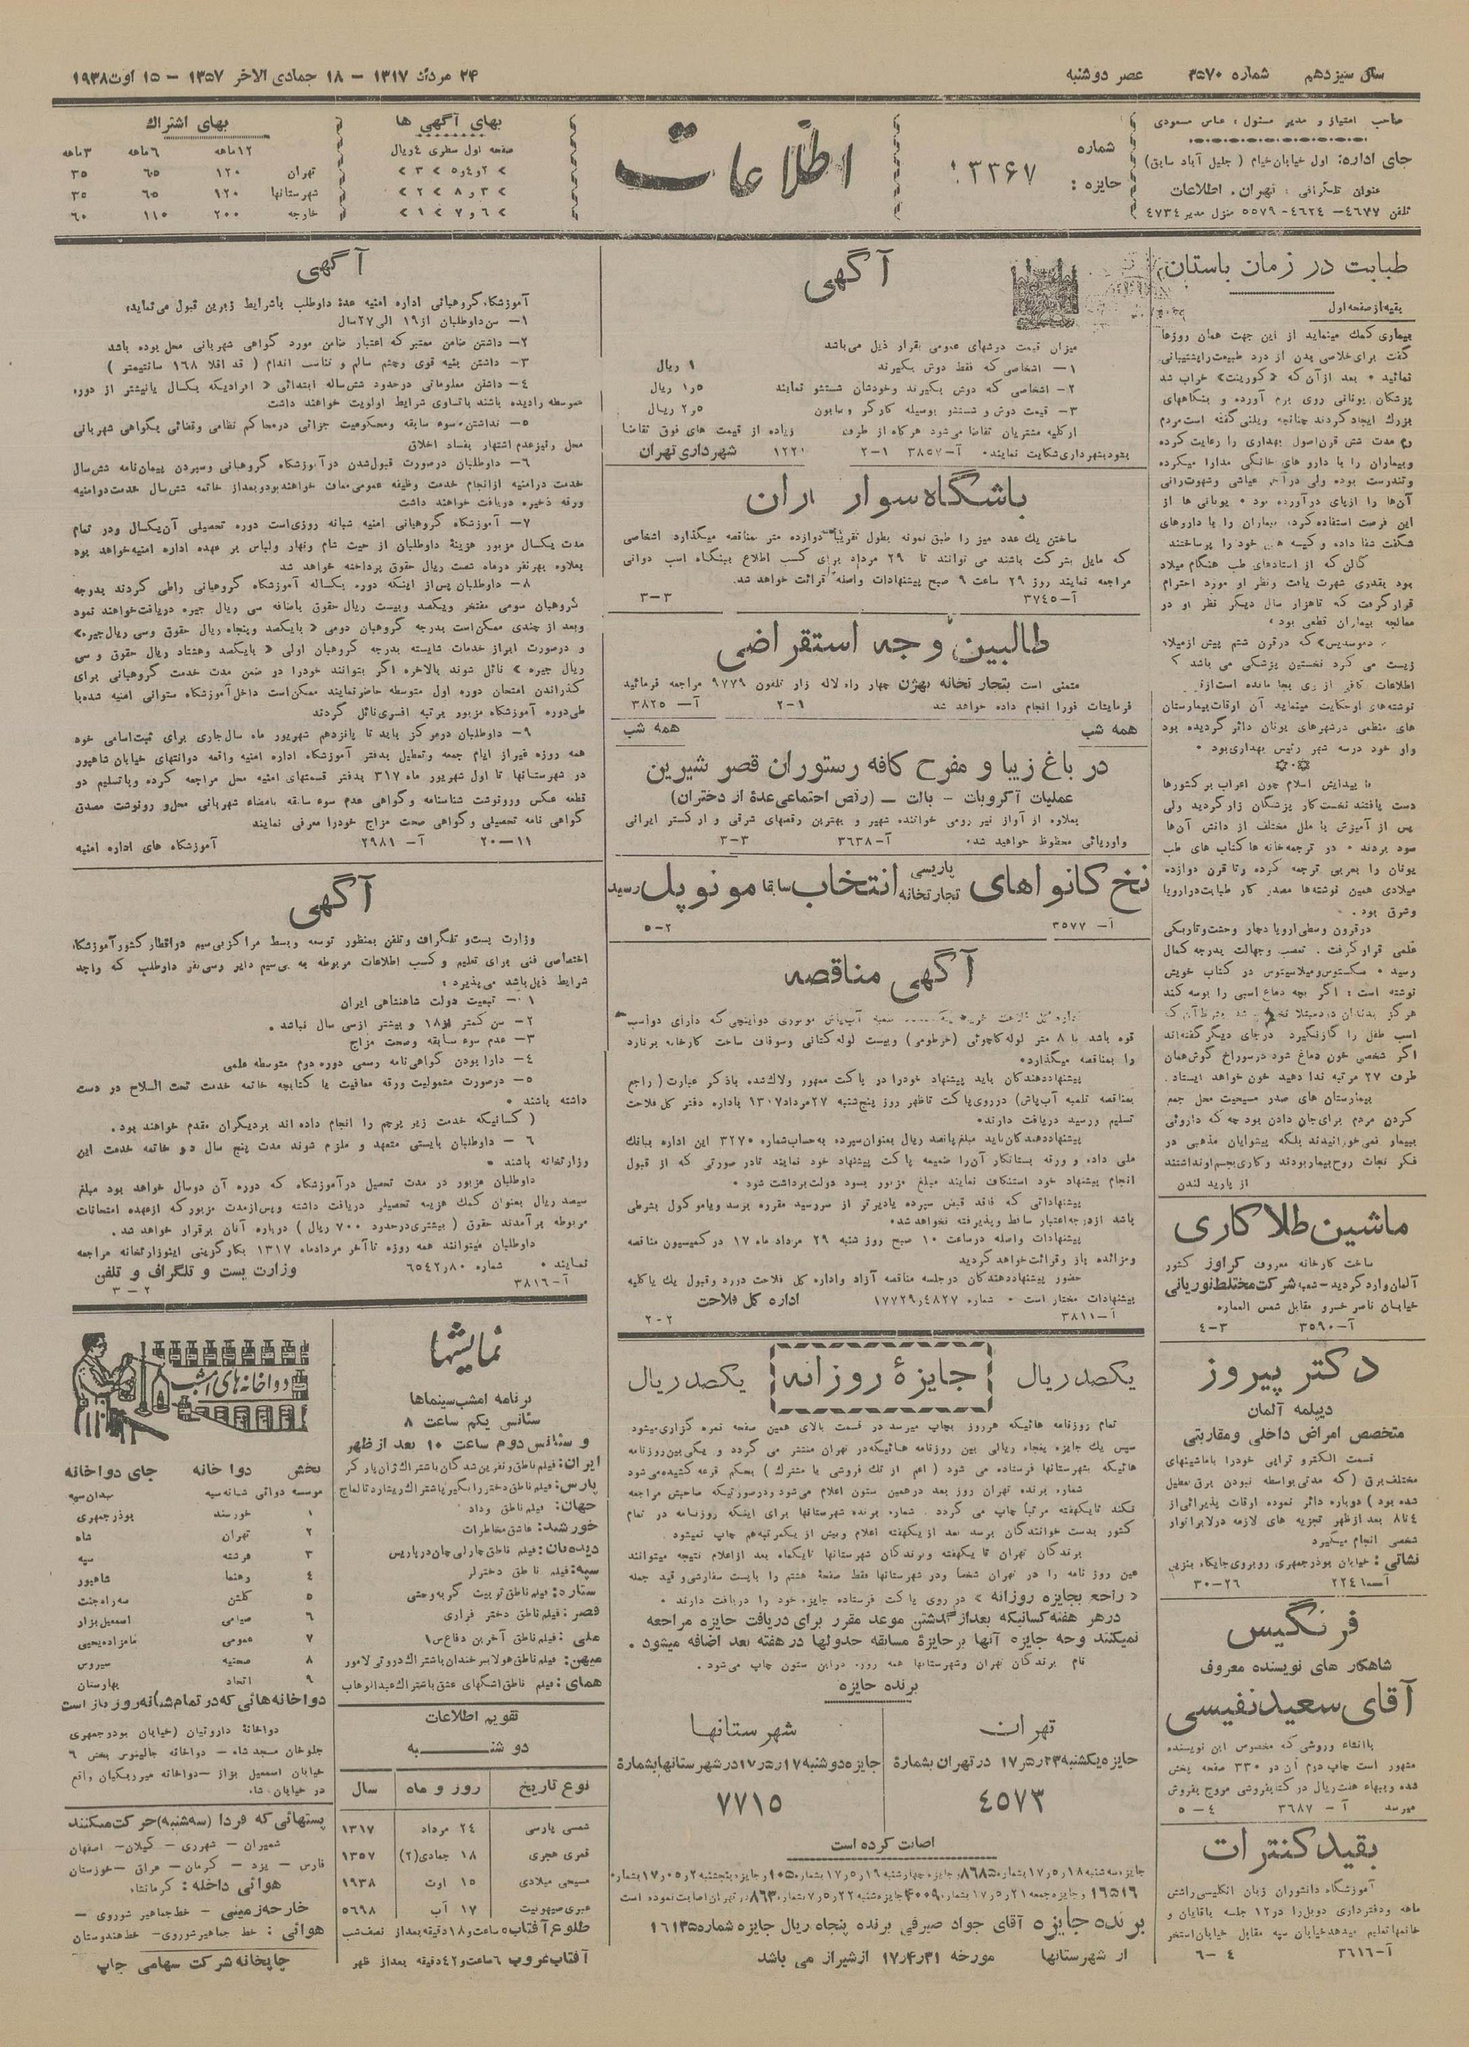 سال سیزدهم شماره ۳۵۷۰ عصر دوشنبه ۲۴ مرداد ۱۳۱۷ – ۱۸ جمادی الاخر ۱۳۵۷ – ۱۵ اوت ۱۹۳۸
صاحب امتیاز و مدیر مسئول : عباس مسعودی
جای اداره: اول خیابان خیام ( جلیل آباد سابق )
عنوان تلگرافی : تهران. اطلاعات
تلفن ۴۶۷۷– ۴۶۲۴– ۵۵۷۹ منزل مدیر ۴۷۳۴
شماره
جایزه :
اطلاعات
بهای آگهی ها
صفحه اول سطری ۴۰ ریال
بهای اشتراک
۱۲ماهه ۶ماهه ۳ماهه
تهران ۱۲۰ ۶۵ ۳۵
شهرستانها ۱۲۰ ۶۵ ۳۵
خارجه ۲۰۰ ۱۱۰ ۶۰
طبابت در زمان باستان
بقیه از صفحه اول
بیماری کمک مینماید از این جهت همان روزها
گفت برای خلاصی بدن از درد طبیعت را پشتیبانی
نمائید • بعد از آن که «کورینت» خراب شد
پزشکان یونانی روی برم آورده و بنگاههای
بزرگ ایجاد کردند چنانچه ویلنی گفته است مردم
رم مدت شش قرن اصول بهداری را رعایت کرده
و بیماران را با دارو های خانگی مدارا میکرده
وتندرست بوده ولی در آخر عیاشی و شهوت رانی
آن‌ها را از پای درآورده بود • یونانی ها از
این فرصت استفاده کرده بیماران را با داروهای
شگفت شفا داده و کیسه های خود را پرساختند
گالن که از استادهای طب هنگام میلاد
بود بقدری شهرت یافت ونظر او مورد احترام
قرار گرفت که تا هزار سال دیگر نظر او در
معالجه بیماران قطعی بود •
که درقرن ششم پیش از میلاد
زیست می کرد نخستین پزشکی می باشد که
نوشته‌های او حکایت مینماید آن اوقات بیمارستان
های منظمی در شهرهای یونان دائر گردیده بود
واو خود در سه شهر رئیس بهداری بود •
با پیدایش اسلام چون اعراب بر کشورها
دست یافتند نخست کار پزشکان زار گردید ولی
پس از آمیزش با ملل مختلف از دانش آن‌ها
سود بردند • در ترجمه خانه ها کتاب های طب
یونان را بعربی ترجمه کرده وتا قرن دوازده
میلادی همین نوشته‌ها مصدر کار طبابت در اروپا
وشرق بود .
در قرون وسطی اروپا دچار وحشت وتاریکی
علمی قرار گرفت . تعصب وجهالت بدرجه کمال
رسید • سکستوس ومیلاسیتوس در کتاب خویش
نوشته است : اگر بچه دماغ اسبی را بوسه کند
اسب طفل را گاز نگیرد در جای دیگر گفته‌اند
اگر شخصی خون دماغ شود در سوراخ گوش همان
طرف ۲۷ مرتبه ندا دهید خون خواهد ایستاد .
بیمارستان های صدر مسیحیت محل جمع
کردن مردم برای جان دادن بود چه که داروئی
ببیمار نمی‌خورانیدند بلکه پیشوایان مذهبی در
فکر نجات روح بیمار بودند و کاری بجسم او نداشتند
ماشین طلا کاری
ساخت کارخانه معروف کراوز کشور
آلمان وارد گردید – شعبه شرکت مختلط نوریانی
خیابان ناصر خسرو مقابل شمس العماره
آ– ۳۵۹۰ ۳–۴
دکتر پیروز
دیپلمه آلمان
متخصص امراض داخلی و مقاربتی
قسمت الکترو تراپی خودرا با ماشینهای
مختلف برق ( که مدتی بواسطه نبودن برق تعطیل
شده بود ) دوباره دائر نموده اوقات پذیرائی از
۴ تا ۸ بعد از ظهر تجزیه های لازمه در لابراتوار
شخصی انجام میگیرد
نشانی : خیابان بوذرجمهری روبروی جایگاه بنزین
آ–۲۲۴۶ ۲۶–۳۰
فرنگیس
شاهکار های نویسنده معروف
آقای سعید نفیسی
با انشاء وروشی که مخصوص این نویسنده
مشهور است چاپ دوم آن در ۳۳۰ صفحه پخش
شده وببهاء هشت ریال در کتابفروشی مروج بفروش
میرسد آ– ۳۶۸۷ ۴–۵
بقید کنترات
آموزشگاه دانشوران زبان انگلیسی راشش
ماهه ودفترداری دوبل را در ۱۲ جلسه بآقایان و
خانمها تعلیم میدهد خیابان سپه مقابل خیابان استخر
آ–۳۶۱۶ ۴–۶
آگهی
میزان قیمت دوشهای عمومی بقرار ذیل می‌باشد
۱– اشخاصی که فقط دوش بگیرند ۱ ریال
۲– اشخاصی که دوش بگیرند وخودشان شستشو نمایند ۱٫۵ ریال
۳– قیمت دوش و شستشو بوسیله کارگر و صابون ۲٫۵ ریال
از کلیه مشتریان تقاضا می‌شود هرگاه از طرف زیاده از قیمت های فوق تقاضا
بشود بشهرداری شکایت نمایند• آ– ۳۸۵۷ ۱–۲ شهرداری تهران
باشگاه سوار
ساختن یک عدد میز را طبق نمونه بطول تقریباً دوازده متر مناقصه میگذارد اشخاصی
که مایل بشرکت باشند می توانند تا ۲۹ مرداد برای کسب اطلاع ببنگاه اسب دوانی
مراجعه نمایند روز ۲۹ ساعت ۹ صبح پیشنهادات واصله قرائت خواهد شد.
آ–۳۷۴۵ ۳–۳
طالبین وجه استقراضی
متمنی است بتجارتخانه بهژن چهار راه لاله زار تلفون ۹۷۷۹ مراجعه فرمائید
فرمایشات فورا انجام داده خواهد شد ۱–۲ آ– ۳۸۲۵
همه شب همه شب
در باغ زیبا و مفرح کافه رستوران قصر شیرین
عملیات آکروبات – بالت – (رقص اجتماعی عدهٔ از دختران)
بعلاوه از آواز نیر رومی خواننده شهیر و بهترین رقصهای شرقی و ارکستر ایرانی
واروپائی محظوظ خواهید شد• آ–۳۶۳۸ ۳–۳
نخ کانواهای پاریسی تجارتخانه انتخاب سابقا مونوپل رسید
آ– ۳۵۷۷ ۲–۵
آگهی مناقصه
قوه باشد با ۸ متر لوله کاچوئی (خرطومی) وبیست لوله کتانی وسوفاف ساخت کارخانه برنارد
را بمناقصه میگذارد•
پیشنهاد دهندگان باید پیشنهاد خودرا در پاکت ممهور ولاک شده با ذکر عبارت ( راجع
بمناقصه تلمبه آب‌پاش) در روی پاکت تا ظهر روز پنج‌شنبه ۲۷ مرداد ۱۳۰۷ باداره دفتر کل فلاحت
تسلیم ورسید دریافت دارند•
پیشنهاد دهندگان باید مبلغ پانصد ریال بعنوان سپرده به حساب شماره ۳۲۷۰ این اداره ببانک
ملی داده و ورقه بستانکار آن‌را ضمیمه پاکت پیشنهاد خود نمایند تا در صورتی که از قبول
انجام پیشنهاد خود استنکاف نمایند مبلغ مزبور بسود دولت برداشت شود •
پیشنهاداتی که فاقد قبض سپرده یا دیرتر از سررسید مقرره برسد ویا موکول بشرطی
باشد از درجه اعتبار ساقط و پذیرفته نخواهد شد•
پیشنهادات واصله در ساعت ۱۰ صبح روز شنبه ۲۹ مرداد ماه ۱۷ در کمیسیون مناقصه
ومزائده باز و قرائت خواهد گردید
حضور پیشنهاد دهندگان در جلسه مناقصه آزاد واداره کل فلاحت در رد وقبول یک یا کلیه
پیشنهادات مختار است • شماره ۱۷۷۲۹٫۴۸۲۷ اداره کل فلاحت
آ–۳۸۱۱ ۲–۲
یکصد ریال جایزهٔ روزانه یکصد ریال
تمام روزنامه هائیکه هر روز بچاپ میرسد در قسمت بالای همین صفحه نمره گزاری میشود
سپس یک جایزه پنجاه ریالی بین روزنامه هائیکه در تهران منتشر می گردد و یکی بین روزنامه
هائیکه بشهرستانها فرستاده می شود ( اعم از تک فروشی یا مشترک ) بحکم قرعه کشیده می‌شود
شماره برنده تهران روز بعد در همین ستون اعلام می‌شود ودر صورتیکه صاحبش مراجعه
نکند تا یکهفته مرتبا چاپ می گردد . شماره برنده شهرستانها برای اینکه روزنامه در تمام
کشور بدست خوانندگان برسد بعد از یکهفته اعلام وبیش از یکمرتبه هم چاپ نمیشود.
برندگان تهران تا یکهفته وبرندگان شهرستانها تا یکماه بعد از اعلام نتیجه میتوانند
عین روز نامه را در تهران شخصا ودر شهرستانها فقط صفحه هشتم را بایست سفارشی و قید جمله
« راجع بجایزه روزانه » در روی پاکت فرستاده جایزه خود را دریافت دارند •
در هر هفته کسانیکه بعد از گذشتن موعد مقرر برای دریافت جایزه مراجعه
نمیکنند وجه جایزه آنها بر جایزهٔ مسابقه جدولها در هفته بعد اضافه میشود .
نام برندگان تهران وشهرستانها همه روزه در این ستون چاپ می‌شود .
برنده جایزه
تهران
جایزه یکشنبه ۱۷٫۵٫۲۳ در تهران بشمارهٔ
۴۵۷۳
شهرستانها
جایزه دوشنبه ۱۷٫۵٫۱۷ در شهرستانها بشمارهٔ
۷۷۱۵
اصابت کرده است
برنده جایزه آقای جواد صیرفی برنده پنجاه ریال جایزه شماره ۱۶۱۳۵
از شهرستانها مورخه ۱۷٫۴٫۳۱ از شیراز می باشد
آگهی
آموزشگاه گروهبانی اداره امنیه عدهٔ داوطلب با شرایط زیرین قبول می‌نماید:
۱– سن داوطلبان از ۱۹ الی ۲۷ سال
۲– داشتن ضامن معتبر که اعتبار ضامن مورد گواهی شهربانی محل بوده باشد
۳– داشتن بنیه قوی وچشم سالم و تناسب اندام ( قد اقلا ۱۶۸ سانتیمتر )
۴– داشتن معلوماتی در حدود شش ساله ابتدائی « افرادیکه یکسال یا بیشتر از دوره
متوسطه را دیده باشند با تساوی شرایط اولویت خواهند داشت
۵– نداشتن سوء سابقه ومحکومیت جزائی در محاکم نظامی وقضائی بگواهی شهربانی
محل ونیز عدم اشتهار بفساد اخلاق
۶– داوطلبان در صورت قبول شدن در آموزشگاه گروهبانی وسپردن پیمان‌نامه شش سال
خدمت در امنیه از انجام خدمت وظیفه عمومی معاف خواهند بود و بعد از خاتمه شش سال خدمت دو امنیه
ورقه ذخیره دریافت خواهند داشت
۷– آموزشگاه گروهبانی امنیه شبانه روزی است دوره تحصیلی آن یکسال ودر تمام
مدت یکسال مزبور هزینهٔ داوطلبان از حیث شام ونهار ولباس بر عهده اداره امنیه خواهد بود
بعلاوه بهر نفر در ماه شصت ریال حقوق پرداخته خواهد شد
۸– داوطلبان پس از اینکه دوره یکساله آموزشگاه گروهبانی راطی کردند بدرجه
گروهبان سومی مفتخر ویکصد وبیست ریال حقوق باضافه سی ریال جیره دریافت خواهند نمود
وبعد از چندی ممکن است بدرجه گروهبان دومی « با یکصد وپنجاه ریال حقوق وسی ریال جیره »
و درصورت ابراز خدمات شایسته بدرجه گروهبان اولی « با یکصد وهشتاد ریال حقوق و سی
ریال جیره » نائل شوند بالاخره اگر بتوانند خودرا در ضمن مدت خدمت گروهبانی برای
گذراندن امتحان دوره اول متوسطه حاضر نمایند ممکن است داخل آموزشگاه ستوانی امنیه شده با
طی دوره آموزشگاه مزبور برتبه افسری نائل گردند
۹– داوطلبان در مرکز باید تا پانزدهم شهریور ماه سال جاری برای ثبت اسامی خود
همه روزه غیر از ایام جمعه وتعطیل بدفتر آموزشگاه اداره امنیه واقعه در انتهای خیابان شاهپور
در شهرستانها تا اول شهریور ماه ۳۱۷ بدفتر قسمتهای امنیه محل مراجعه کرده وبا تسلیم دو
قطعه عکس ورونوشت شناسنامه وگواهی عدم سوء سابقه بامضاء شهربانی محل و رونوشت مصدق
گواهی نامه تحصیلی وگواهی صحت مزاج خودرا معرفی نمایند
۱۱–۲۰ آ– ۲۹۸۱ آموزشگاه های اداره امنیه
آگهی
وزارت پست و تلگراف وتلفن بمنظور توسعه وبسط مراکز بی‌سیم در اقطار کشور آموزشگاه
اختصاصی فنی برای تعلیم و کسب اطلاعات مربوطه به بی‌سیم دایر وسی نفر داوطلب که واجد
شرایط ذیل باشد می‌پذیرد :
۱– تبعیت دولت شاهنشاهی ایران
۲– سن کمتر از ۱۸ و بیشتر از سی سال نباشد.
۳– عدم سوء سابقه وصحت مزاج
۴– دارا بودن گواهی‌نامه رسمی دوره دوم متوسطه علمی
۵– در صورت مشمولیت ورقه معافیت یا کتابچه خاتمه خدمت تحت السلاح در دست
داشته باشند •
( کسانیکه خدمت زیر پرچم را انجام داده اند بر دیگران مقدم خواهند بود.
۶ – داوطلبان بایستی متعهد و ملزم شوند مدت پنج سال در خاتمه خدمت این
وزارتخانه باشند •
داوطلبان مزبور در مدت تحصیل در آموزشگاه که دوره آن دو سال خواهد بود مبلغ
سیصد ریال بعنوان کمک هزینه تحصیلی دریافت داشته وپس از مدت مزبور که از عهده امتحانات
مربوطه برآمدند حقوق ( بیشتری در حدود ۷۰۰ ریال ) درباره آنان برقرار خواهد شد .
داوطلبان میتوانند همه روزه تا آخر مرداد ماه ۱۳۱۷ بکارگزینی این وزارتخانه مراجعه
نمایند • شماره ۶۵۴۲٫۸۰ وزارت پست و تلگراف و تلفن
آ–۳۸۱۶ ۲–۳
نمایشها
برنامه امشب سینماها
سئانس یکم ساعت ۸
و سئانس دوم ساعت ۱۰ بعد از ظهر
جهان: فیلم ناطق وداد
خورشید: عاشق مخاطرات
دیده‌بان: فیلم ناطق چارلی چان در پاریس
سپه: فیلم ناطق دختر لر
ستاره: فیلم ناطق تربیت گربه وحشی
قصر: فیلم ناطق دختر فراری
ملی: فیلم ناطق آخرین دفاع س ۱
همای: فیلم ناطق اشگهای عشق باشتراک عبدالوهاب
تقویم اطلاعات
دوشنبه
نوع تاریخ روز و ماه سال
شمسی پارسی ۲۴ مرداد ۱۳۱۷
قمری هجری ۱۸ جمادی(۲) ۱۳۵۷
مسیحی میلادی ۱۵ اوت ۱۹۳۸
عبری صیهونیت ۱۷ آب ۵۶۹۸
طلوع آفتاب ۵ساعت و۱۸دقیقه بعد از نصف شب
آفتاب غروب ۶ساعت و۴۲دقیقه بعد از ظهر
دواخانه‌های امشب
بخش دواخانه جای دواخانه
موسسه دوائی شبانه سپه میدان سپه
۱ خورسند بوذرجمهری
۲ تهران شاه
۳ فرشته سپه
۴ رهنما شاهپور
۵ گلشن سه راه جنت
۶ صیامی اسمعیل بزاز
۷ عمومی امامزاده یحیی
۸ صحتیه سیروس
۹ اتحاد بهارستان
دواخانه هائی که در تمام شبانه روز باز است
دواخانهٔ داروئیان (خیابان بوذرجمهری
جلوخان مسجد شاه – دواخانه جالینوس بخش ۶
خیابان اسمعیل بزاز – دواخانه میر ریگیان واقع
در خیابان شاه.
پستهائی که فردا (سه‌شنبه) حرکت میکنند
شمیران – شهرری – گیلان – اصفهان
فارس – یزد – کرمان – عراق – خوزستان
هوائی داخله : کرمانشاه
خارجه زمینی – خط جماهیر شوروی –
هوائی : خط جماهیر شوروی – خط هندوستان
چاپخانه شرکت سهامی چاپ